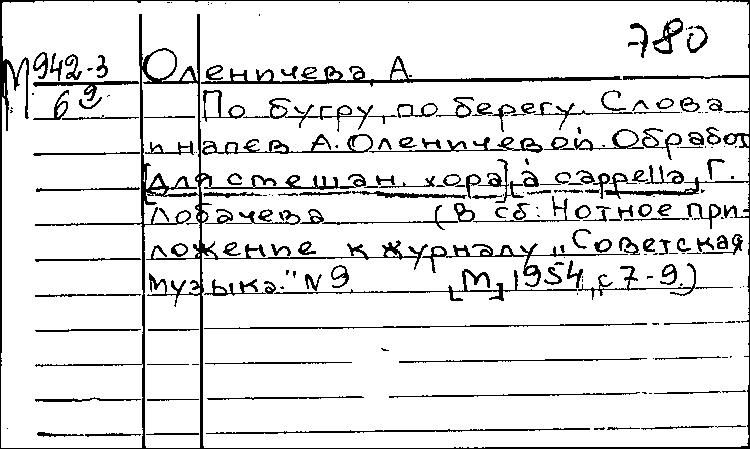 780
М 942-3
69
Оленичева, А.
По бугру, по берегу. Слова
и напев А. Оленичевой. Обработ
[для смешан. хора], a cappella, Г.
Лобачева (В сб: Нотное при-
ложение к журналу „Советская
музыка." N 9. [М], 1954, с 7-9.)